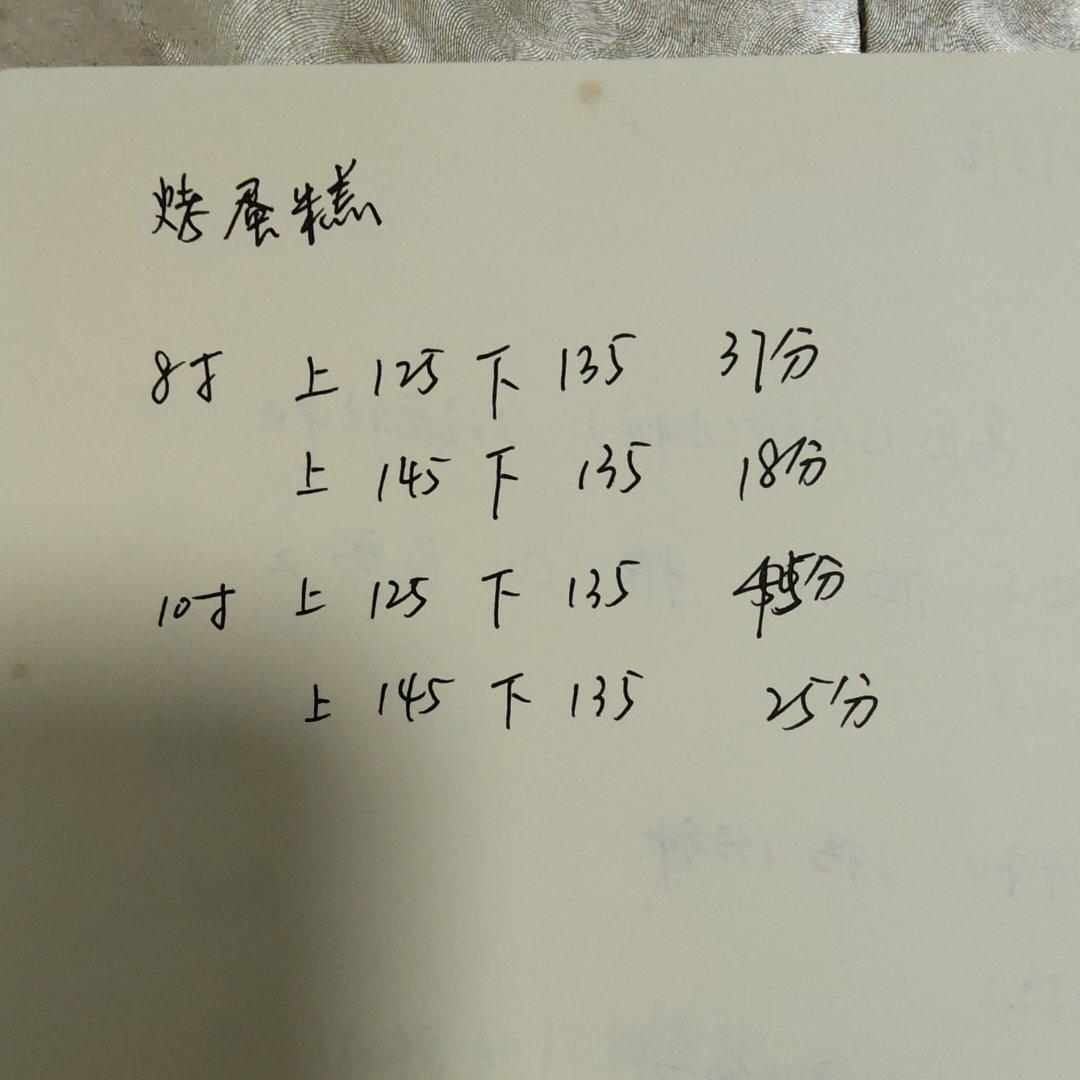 烤蛋糕
8寸 上 125 下 135 37分
上 145 下 135 18分
10寸 上 125 下 135 分
上 145 下 135 25分